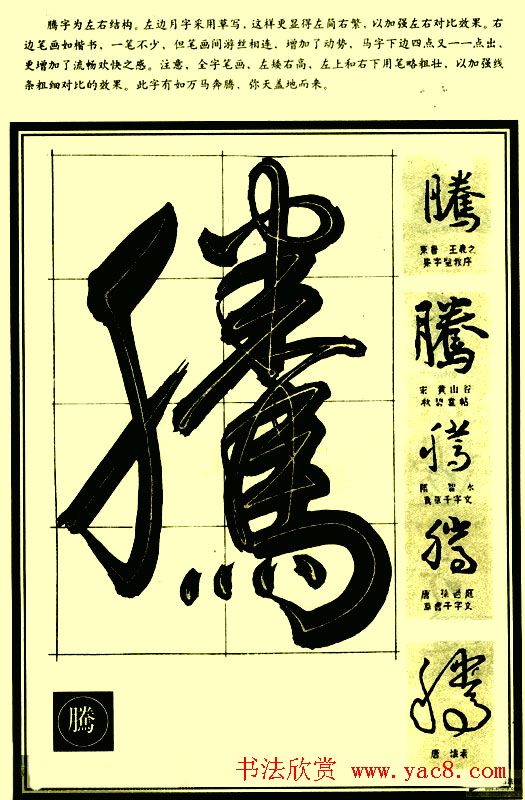 腾字为左右结构。左边月字采用草写，这样更显得左简右繁，以加强左右对比效果。右
边笔画如楷书，一笔不少，但笔画间游丝相连，增加了动势，马字下边四点又一一点出，
更增加了流畅欢快之感。注意，全字笔画、左矮右高，左上和右下用笔略粗壮，以加强线
条粗细对比的效果。此字有如万马奔腾、弥天盖地而来。
騰
騰
东晋 王羲之
圣字圣教序
騰
宋 黄山谷
騰
隋 智永
真草千字文
騰
唐 孙过庭
草书千字文
騰
唐 怀素
騰
书法欣赏 www.yac8.com